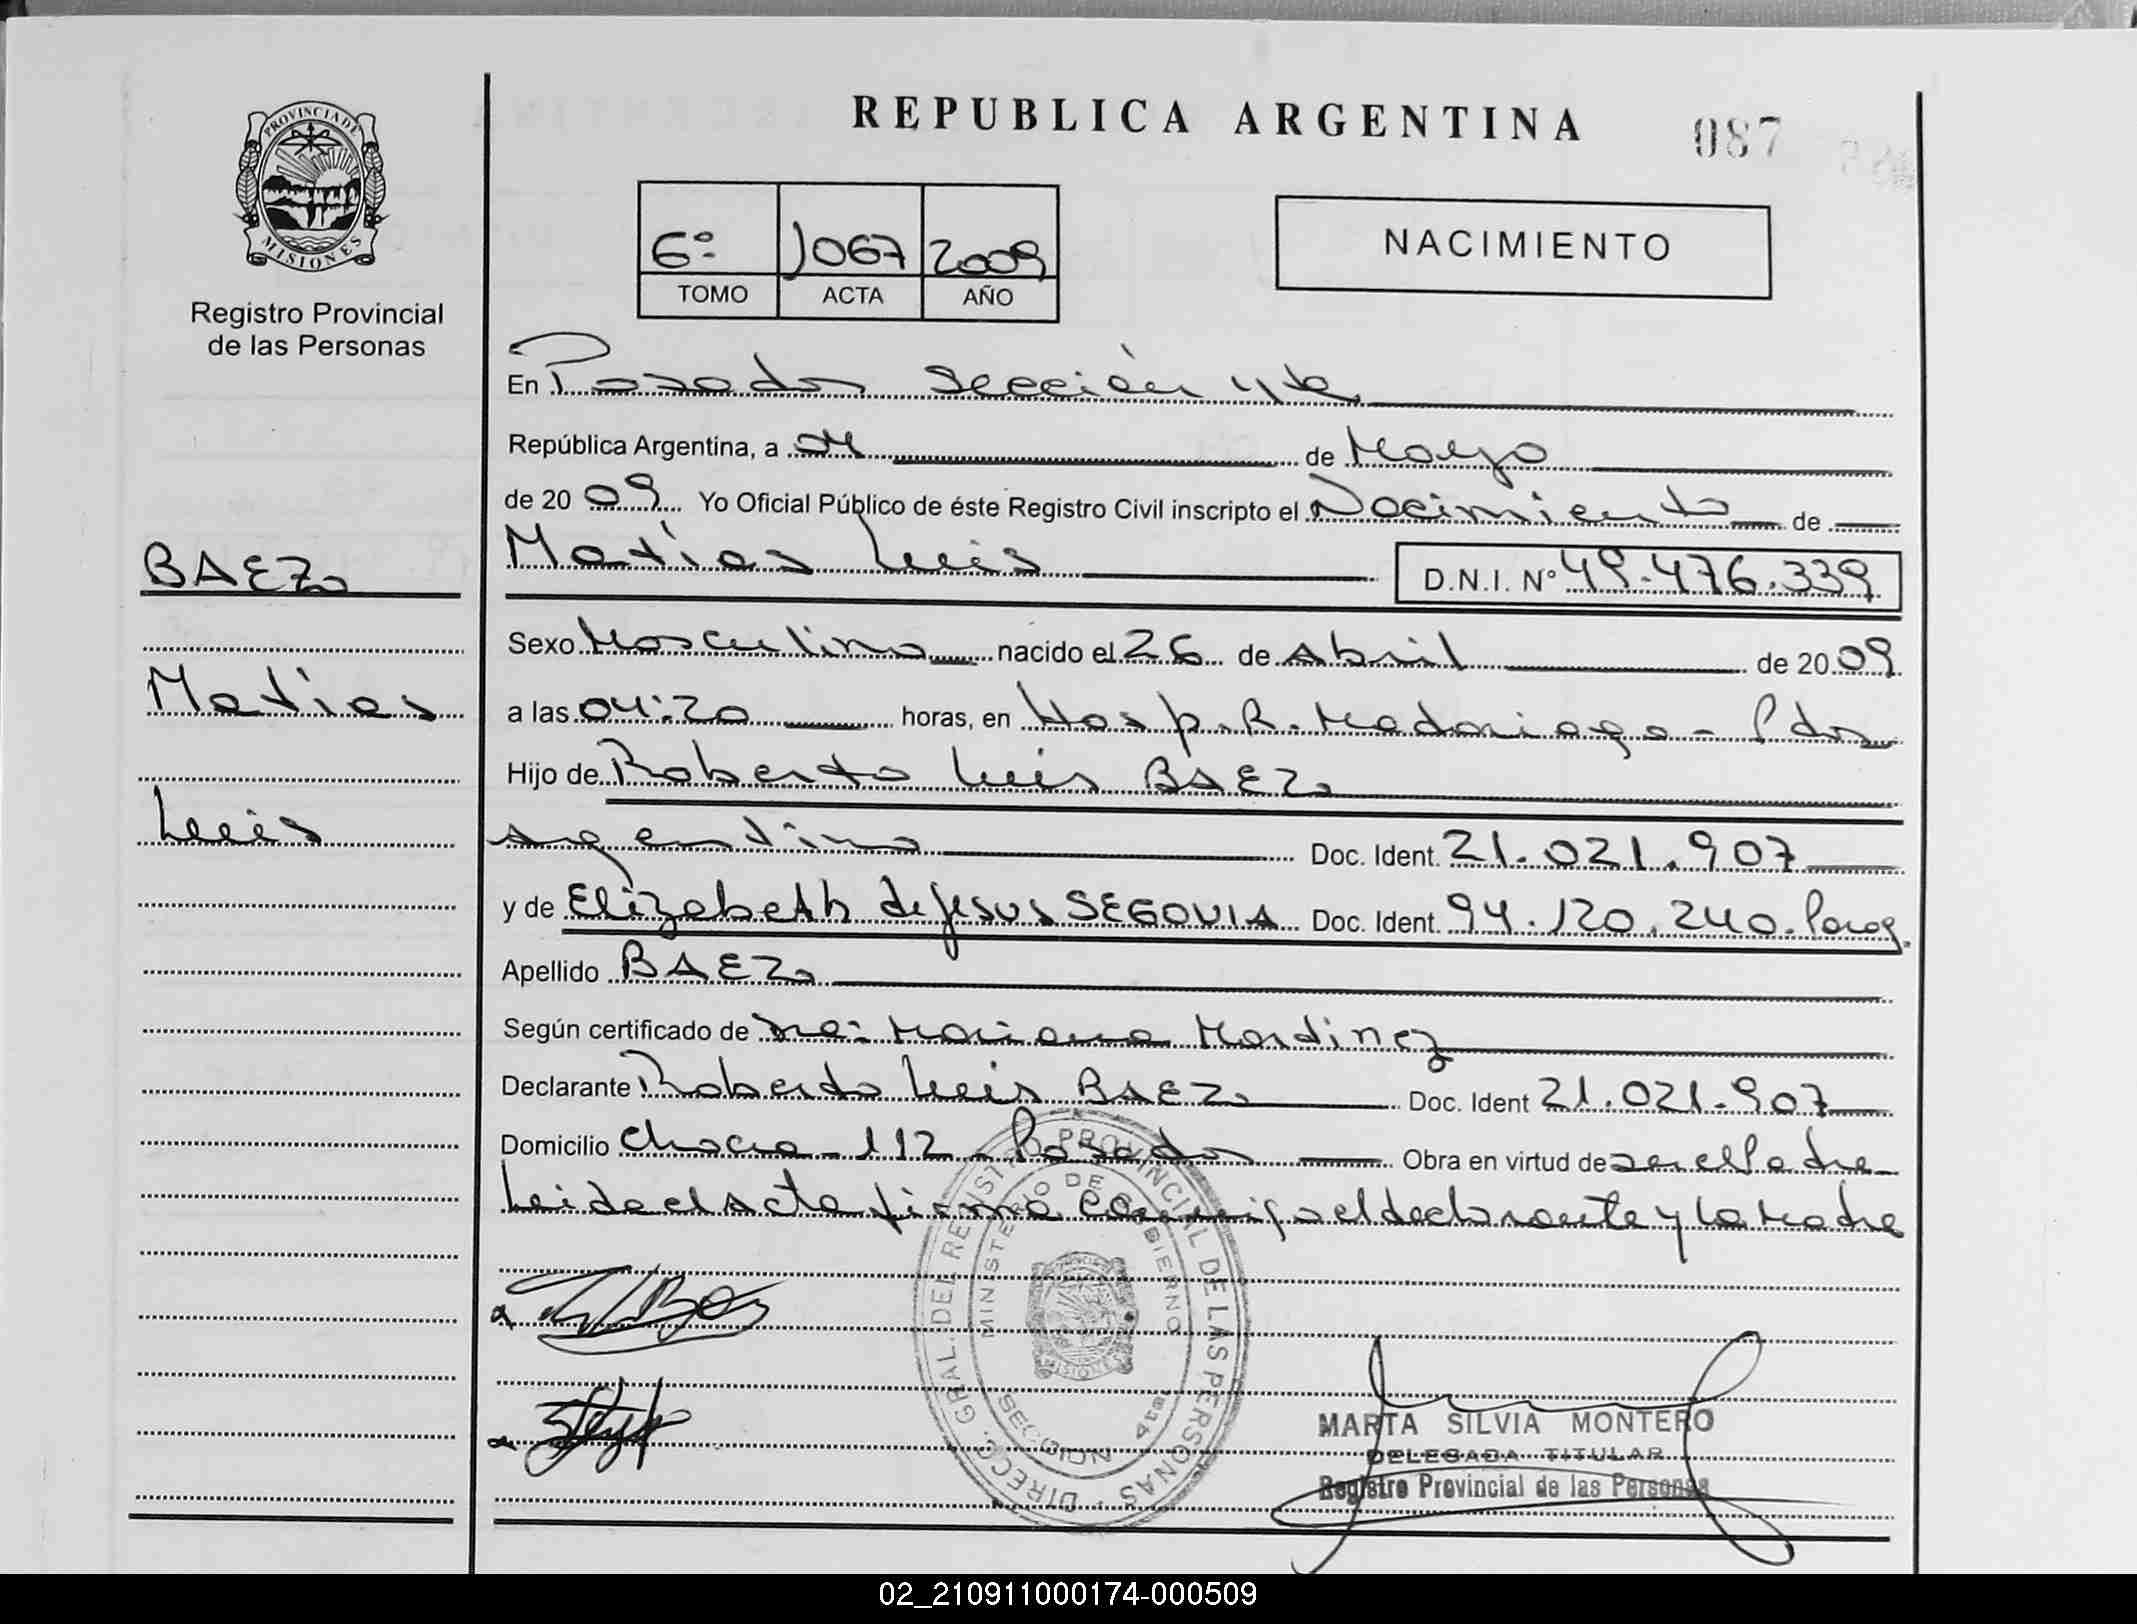 REPUBLICA ARGENTINA
087
PROVINCIA DE
MISIONES
Registro Provincial
de las Personas
6º 1067 2009
TOMO ACTA AÑO
NACIMIENTO
En Posadas Sección 4ta
República Argentina, a 04 de Mayo
de 20 09 Yo Oficial Público de éste Registro Civil inscripto el Nacimiento de
BAEZ
Matías Luis D.N.I. Nº 49.476.339
Sexo Masculino nacido el 26 de Abril de 20 09
Matías
a las 04:20 horas, en Hosp. R. Madariaga - Pdas
Hijo de Roberto Luis BAEZ
Luis
Argentino Doc. Ident. 21.021.907
y de Elizabeth de Jesus SEGOVIA Doc. Ident. 94.120.240. Parag.
Apellido BAEZ
Según certificado de Mariana Martinez
Declarante Roberto Luis BAEZ Doc. Ident 21.021.907
Domicilio Chacra - 112 - Posadas Obra en virtud de ser el Padre
Leida el Acta firma conmigo el declarante y la Madre
DIRECC. GRAL. DEL REGIST. PROVINCIAL DE LAS PERSONAS
MINISTERIO DE GOBIERNO
SECCION 4ta
MISIONES
MARTA SILVIA MONTERO
DELEGADA TITULAR
Registro Provincial de las Personas
02_210911000174-000509